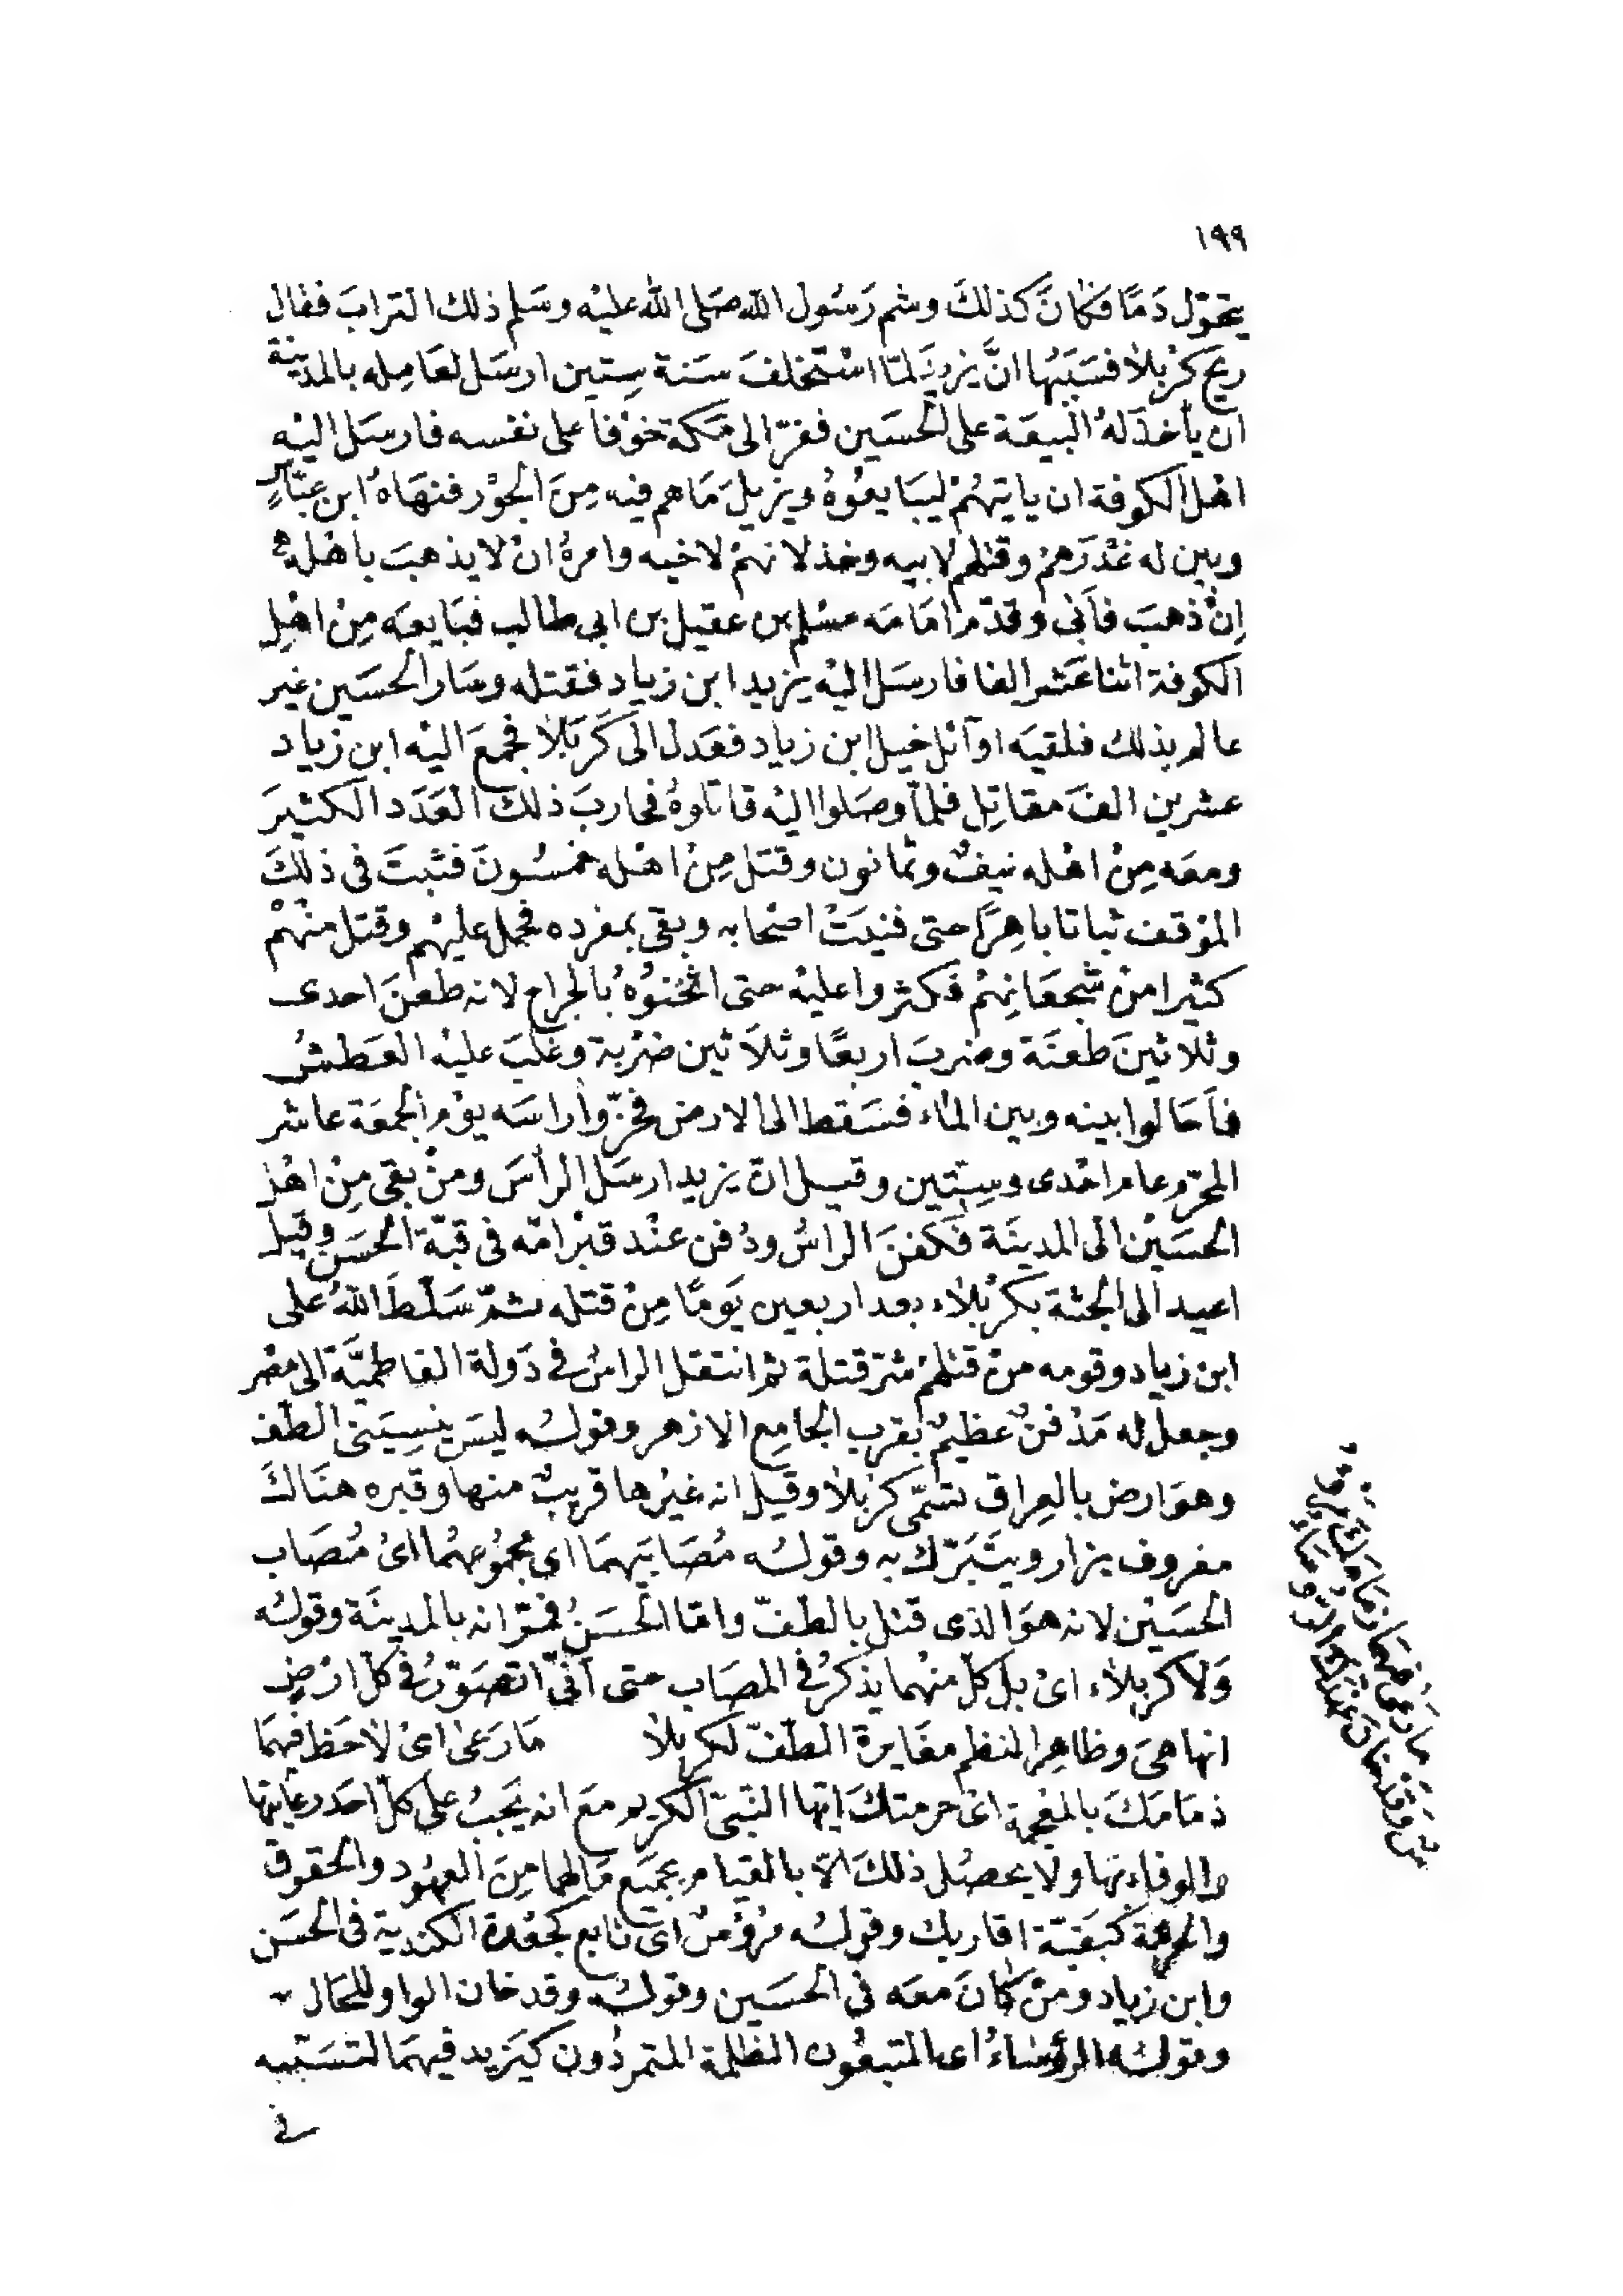 ١٩٩
يتحوّل دَمًا فكانَ كذلكَ وشم رَسُول الله صَلى الله عليْه وسَلم ذلك الترابَ فقال
ريح كرْبلا فسَبَبُها انَّ يزيدَ لمّا اسْتخلفَ سَنة سِتين ارسَل لعَامِله بالمدينة
ان يأخذَ لهُ البيعَة على الحسَين ففرّ الى مَكة خوْفا على نفسه فارسَل اليْه
اهْل الكوفة ان ياتيهُمْ ليبَايعُوهُ ويزيلَ مَا هم فيْه مِنَ الجوْر فنهَاهُ ابن عبّاس
وبين له غدْرَهمْ وقتلهم لابيه وخذلانهمْ لاخيه وامرهُ انْ لا يذهبَ باهْله
اِنْ ذهبَ فأبى وقدّم امَامَه مسْلم بن عقيل بن ابي طالب فبَايعَه مِنْ اهْلِ
الكوفة اثنا عَشر الفا فارسَل اليْه يزيد ابن زياد فقتله وسَار الحسَين غير
عالم بذلك فلقيَه اوآئل خيل ابن زياد فعَدل الى كَرْبَلا فجمعَ اليْه ابن زياد
عشرين الفَ مقاتِل فلمّا وصَلوا اليْه قاتلوهُ فحاربَ ذلكَ العَدَد الكثيرَ
ومعَه مِنْ اهْله نيفٌ وثمانون وقتل مِنْ اهْله خمسُونَ فثبتَ في ذلكَ
الموْقف ثباتا باهِرًا حتى فنيَتْ اصْحابه وبقى بمفرده فحمل عليْهم وقتل منْهمْ
كثيرا منْ شجعَانِهمْ فكثروا عليْه حتى اثخنوُهُ بالجراح لانه طعنَ احدى
وثلاثينَ طعنَة وضربَ اربعًا وثلاَثين ضرْبة وغلبَ عليْه العَطشُ
فاَحَالوا بينه وبين الماء فسَقط الى الارض فحزّوا راسَه يوْم الجمعَة عاشر
المحرّم عام احْدى وسِتين وقيل انّ يزيد ارسَل الرأسَ ومنْ بقى مِنْ اهْل
الحسَيْن الى المدينَة فكفنَ الراسُ ودُفن عنْد قبْر امّه في قبّة الحسَن وقيل
اعيد الى الجثة بكرْبلاء بعد اربعين يَومًا مِنْ قتله ثمّ سَلّطَ اللهُ على
ابن زياد وقومه منْ قتلهمْ شرّ قتلة ثم انتقل الراسُ في دَولة الفاطميَّة الى مصْر
وجعل له مَدْفنٌ عظيمٌ بقرب الجامِع الازهر وقولـُه ليسَ ينسِيَنى الطف
وهوَ ارض بالعِراق تسَمّى كرْبلا وقيل انه غيْرها قريبٌ منها وقبره هنَالكَ
معْروف يزار ويتَبَرّك به وقولـُه مُصَابَيهمَا اى مجمُوعهُما اىْ مُصَاب
الحسَيْن لانه هوَ الذى قتل بالطفّ وامّا الحسَنُ فمرّ انه بالمدينَة وقولـُه
وَلا كربلاء اىْ بل كلّ منْهما يذكرُني المصَاب حتى اَنّى اتصَوّرُ في كلّ ارْضٍ
انها هىَ وظاهِر النظم مغَايرة الطفّ لكربلا مَا رَعَى اىْ لاحَظ فيهمَا
ذمَامَكَ بالمعْجمة اىْ حرمتكَ ايّها النبىّ الكريم معَ انه يَجبُ على كلّ احَد رعَايتها
والوفاء بها ولا يحصُل ذلكَ الّا بالقيام بجميَع مَا لهما مِنَ العهُود والحقوق
والحرمة كبَقيّة اقاربك وقولـُه مرْؤسٌ اىْ تابع كجعْدة الكندية في الحسَن
وابن زياد ومنْ كانَ معَه في الحسَين وقولـُه وقد خان الواو للحَال
وقولـُه الرؤسَاءُ اى المتبعُون الظلمة المتمردُون كيَزيد فيهمَا لتسَبّبه
في
مَا رعى فيهمَا ذمَامَكَ مرْؤو
سٌ وقدْ خانَ عهْدكَ الرّؤسَاءُ